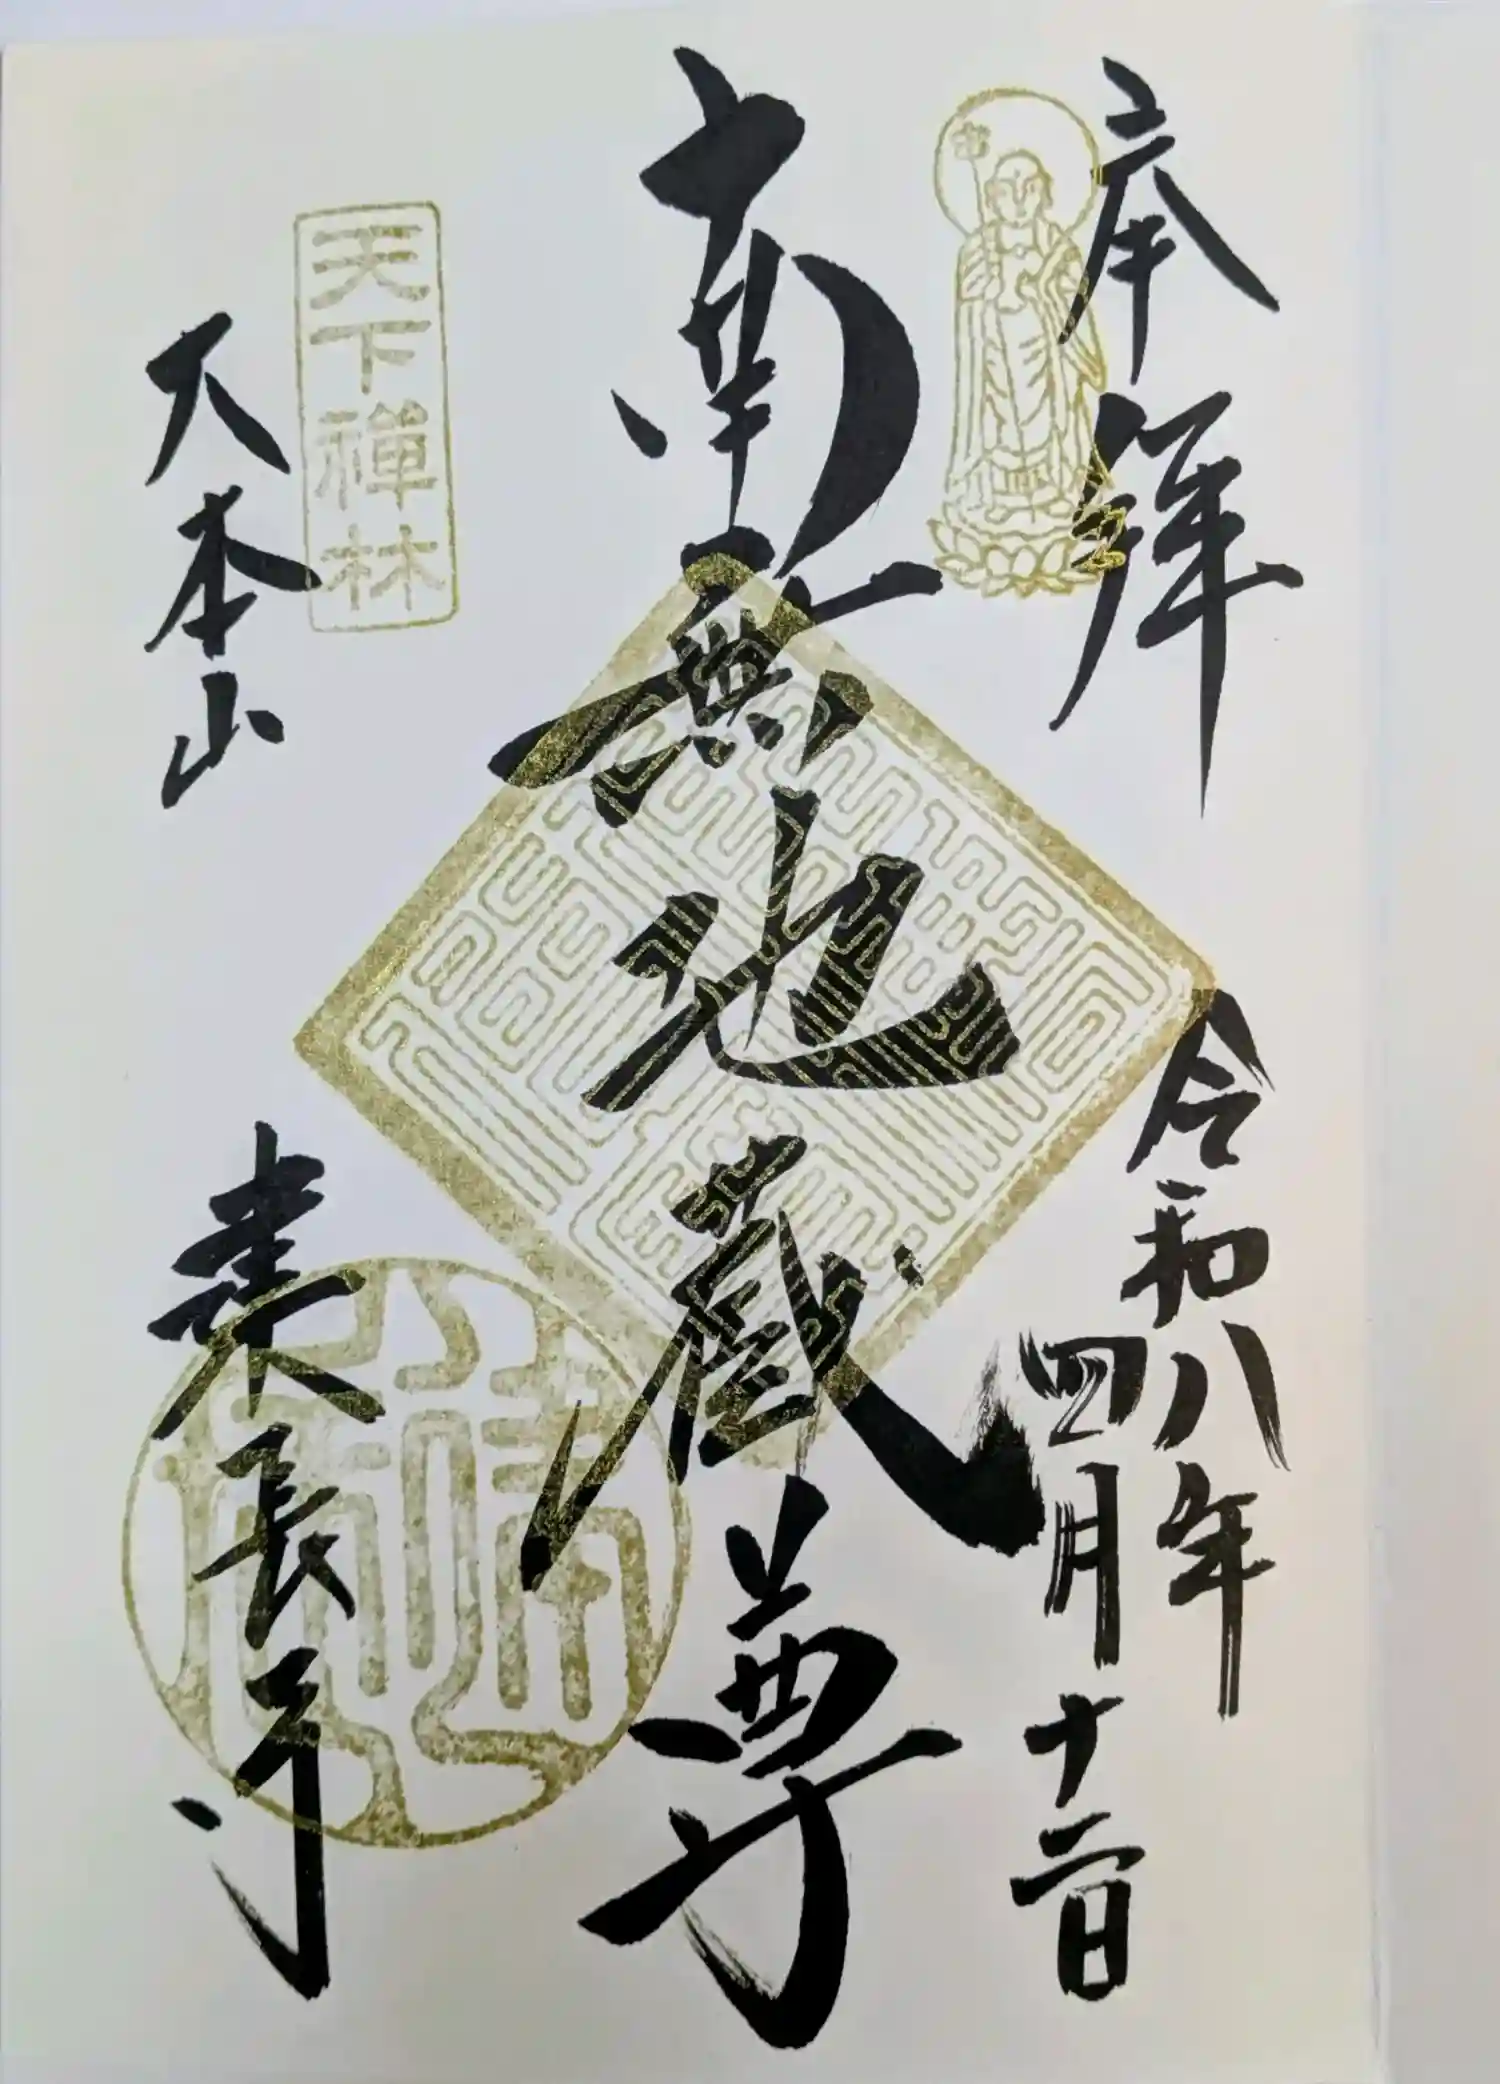 奉拝
令和八年
四月十二日
南無地蔵尊
天下禪林
大本山
建長寺